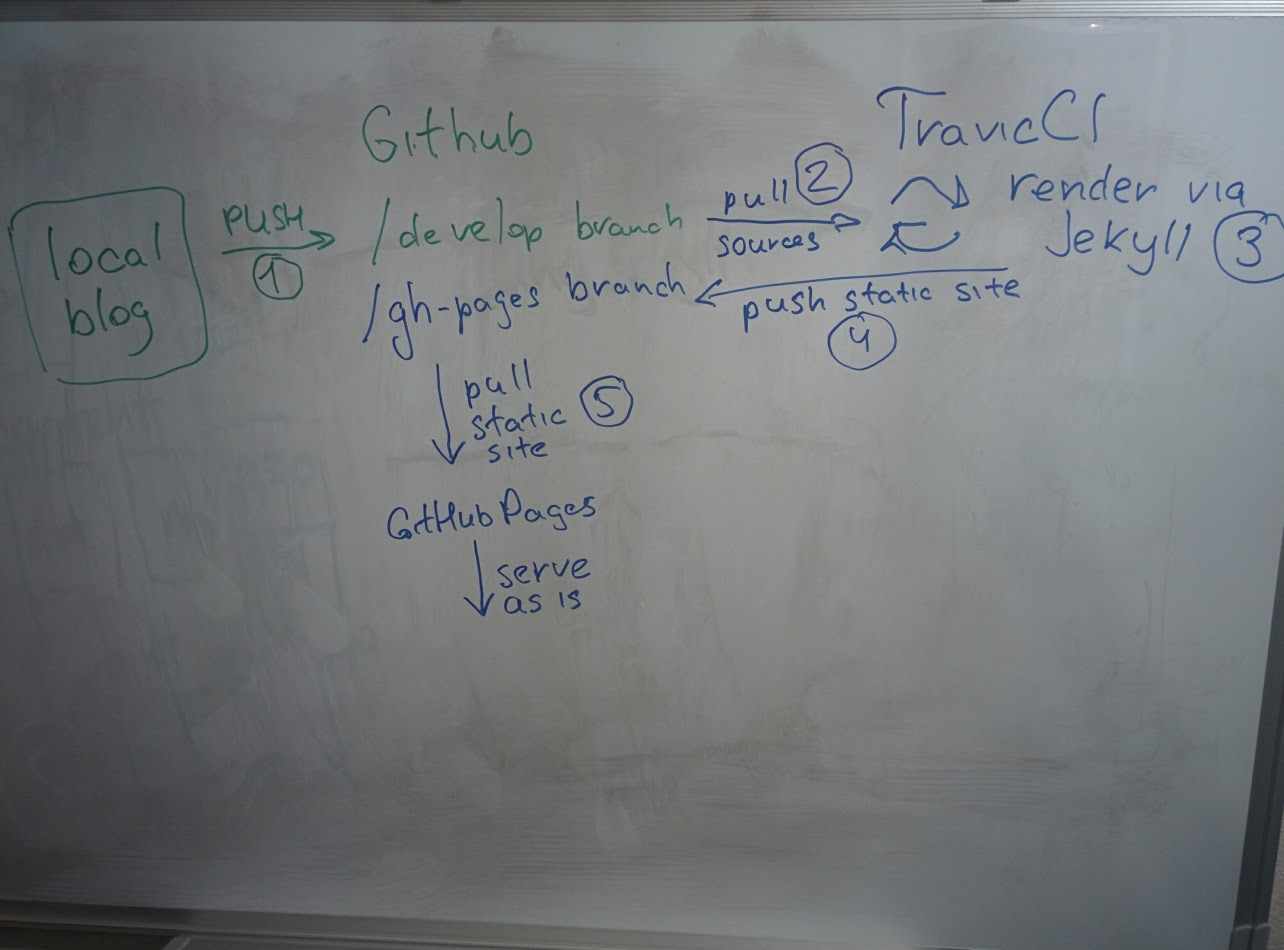 Github
TravicCI
local
blog
PUSH
1
/develop branch
pull 2
sources
render via
Jekyll 3
/gh-pages branch
push static site
4
pull
static 5
site
GitHub Pages
serve
as is